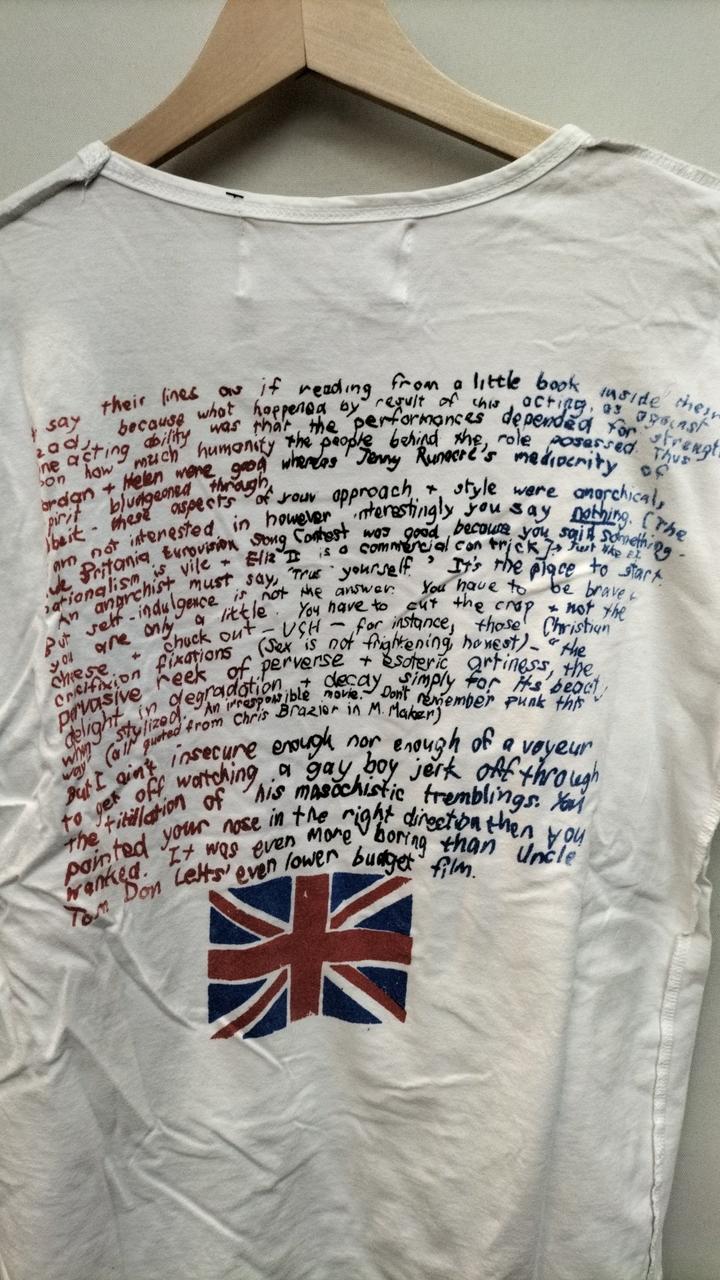 say their lines as if reading from a little book inside their
ead, because what happened by result of this acting, as against
ine acting ability was that the performances depended for strength
on how much humanity the people behind the role posessed. Thus
ordan + Helen were good whereas Jenny Runacre's mediocrity of
pirit bludgeoned through,
lbeit - these aspects of your approach + style were anarchical,
am not interested in however interestingly you say nothing. (The
ule Britania Eurovision Song Contest was good because you said something.
ationalism is vile + Eliz II is a commercial con trick) → Just like E2
An anarchist must say, "Trust yourself." It's the place to start.
But self-indulgence is not the answer. You have to be brave,
you are only a little. You have to cut the crap + not the
cheese + chuck out - UGH - for instance, those Christian
crucifixion fixations (Sex is not frightening, honest) - "the
pervasive reek of perverse + esoteric artiness, the
delight in degradation + decay simply for its beauty
when stylized. An irresponsible movie. Don't remember punk this
way" (all quoted from Chris Brazier in M. Maker)
But I ain't insecure enough nor enough of a voyeur
to get off watching a gay boy jerk off through
the titillation of his masochistic tremblings. You
pointed your nose in the right direction then you
wanked. It was even more boring than Uncle
Tom Don Letts' even lower budget film.